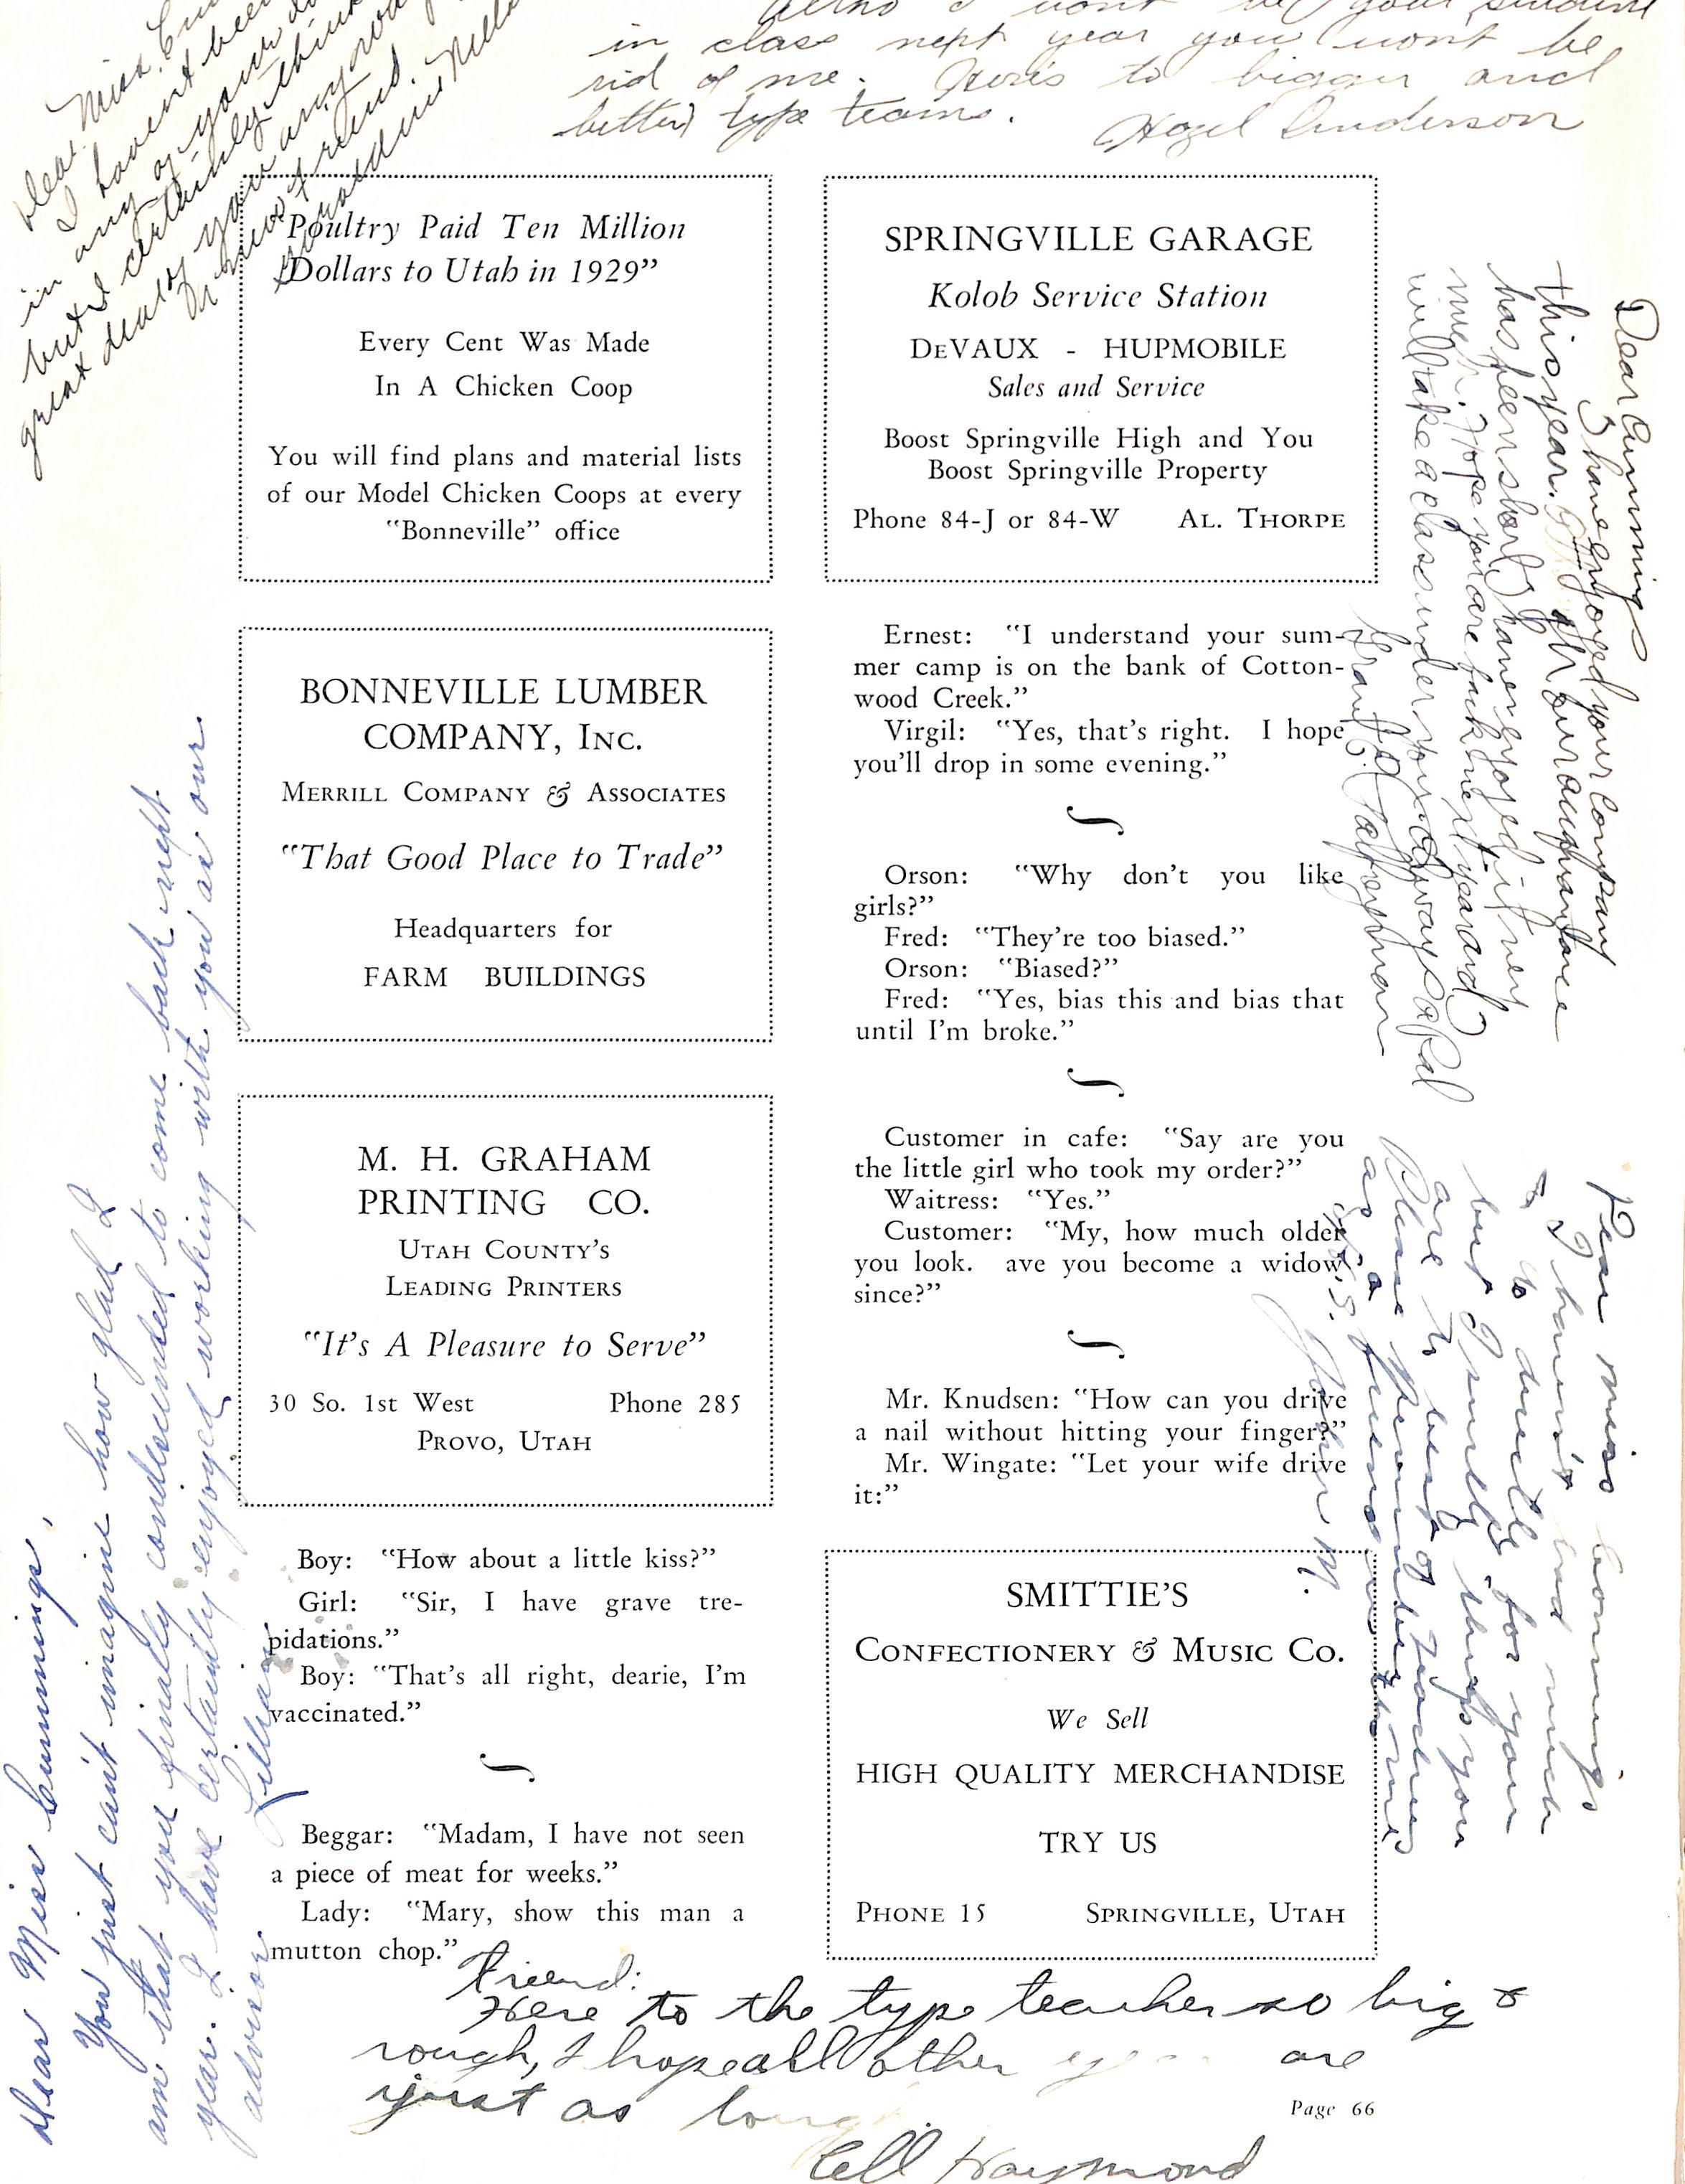 Dear Miss
I haven't been
in any of your
but I certainly think
great deal of you anyway
friend.
Altho I won't be your student
in class next year you won't be
rid of me. Here's to bigger and
better type teams.
Hazel Anderson
"Poultry Paid Ten Million
Dollars to Utah in 1929"
Every Cent Was Made
In A Chicken Coop
You will find plans and material lists
of our Model Chicken Coops at every
"Bonneville" office
BONNEVILLE LUMBER
COMPANY, INC.
MERRILL COMPANY & ASSOCIATES
"That Good Place to Trade"
Headquarters for
FARM BUILDINGS
M. H. GRAHAM
PRINTING CO.
UTAH COUNTY'S
LEADING PRINTERS
"It's A Pleasure to Serve"
30 So. 1st West Phone 285
PROVO, UTAH
Boy: "How about a little kiss?"
Girl: "Sir, I have grave tre-
pidations."
Boy: "That's all right, dearie, I'm
vaccinated."
Beggar: "Madam, I have not seen
a piece of meat for weeks."
Lady: "Mary, show this man a
mutton chop."
SPRINGVILLE GARAGE
Kolob Service Station
DEVAUX - HUPMOBILE
Sales and Service
Boost Springville High and You
Boost Springville Property
Phone 84-J or 84-W AL. THORPE
Ernest: "I understand your sum-
mer camp is on the bank of Cotton-
wood Creek."
Virgil: "Yes, that's right. I hope
you'll drop in some evening."
Orson: "Why don't you like
girls?"
Fred: "They're too biased."
Orson: "Biased?"
Fred: "Yes, bias this and bias that
until I'm broke."
Customer in cafe: "Say are you
the little girl who took my order?"
Waitress: "Yes."
Customer: "My, how much older
you look. ave you become a widow
since?"
Mr. Knudsen: "How can you drive
a nail without hitting your finger?"
Mr. Wingate: "Let your wife drive
it:"
SMITTIE'S
CONFECTIONERY & MUSIC CO.
We Sell
HIGH QUALITY MERCHANDISE
TRY US
PHONE 15 SPRINGVILLE, UTAH
Dear Miss Cummings,
You just can't imagine how glad I
am that you finally condescended to come back next
year. I have certainly enjoyed working with you as our
advisor.
Lillian
Dear Cummings
I have enjoyed your company
this year. Altho our acquaintance
has been short I have enjoyed it very
much. Hope you are back next year and
will take a class under you. Always a pal
Dear Miss Cummings
I haven't had much
to do with for you
but I think you
are the best of teachers
Please remember me
as a friend
Friend:
Here to the type teacher so big &
rough, I hope all other are
just as
Cell Haymond
Page 66